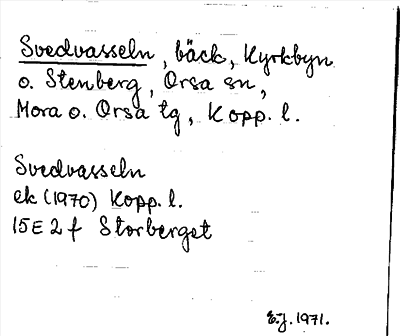 Svedvasseln, bäck, Kyrkbyn
o. Stenberg, Orsa sn,
Mora o. Orsa tg, Kopp. l.
Svedvasseln
ek (1970) Kopp. l.
15E 2 f Storberget
E.J. 1971.